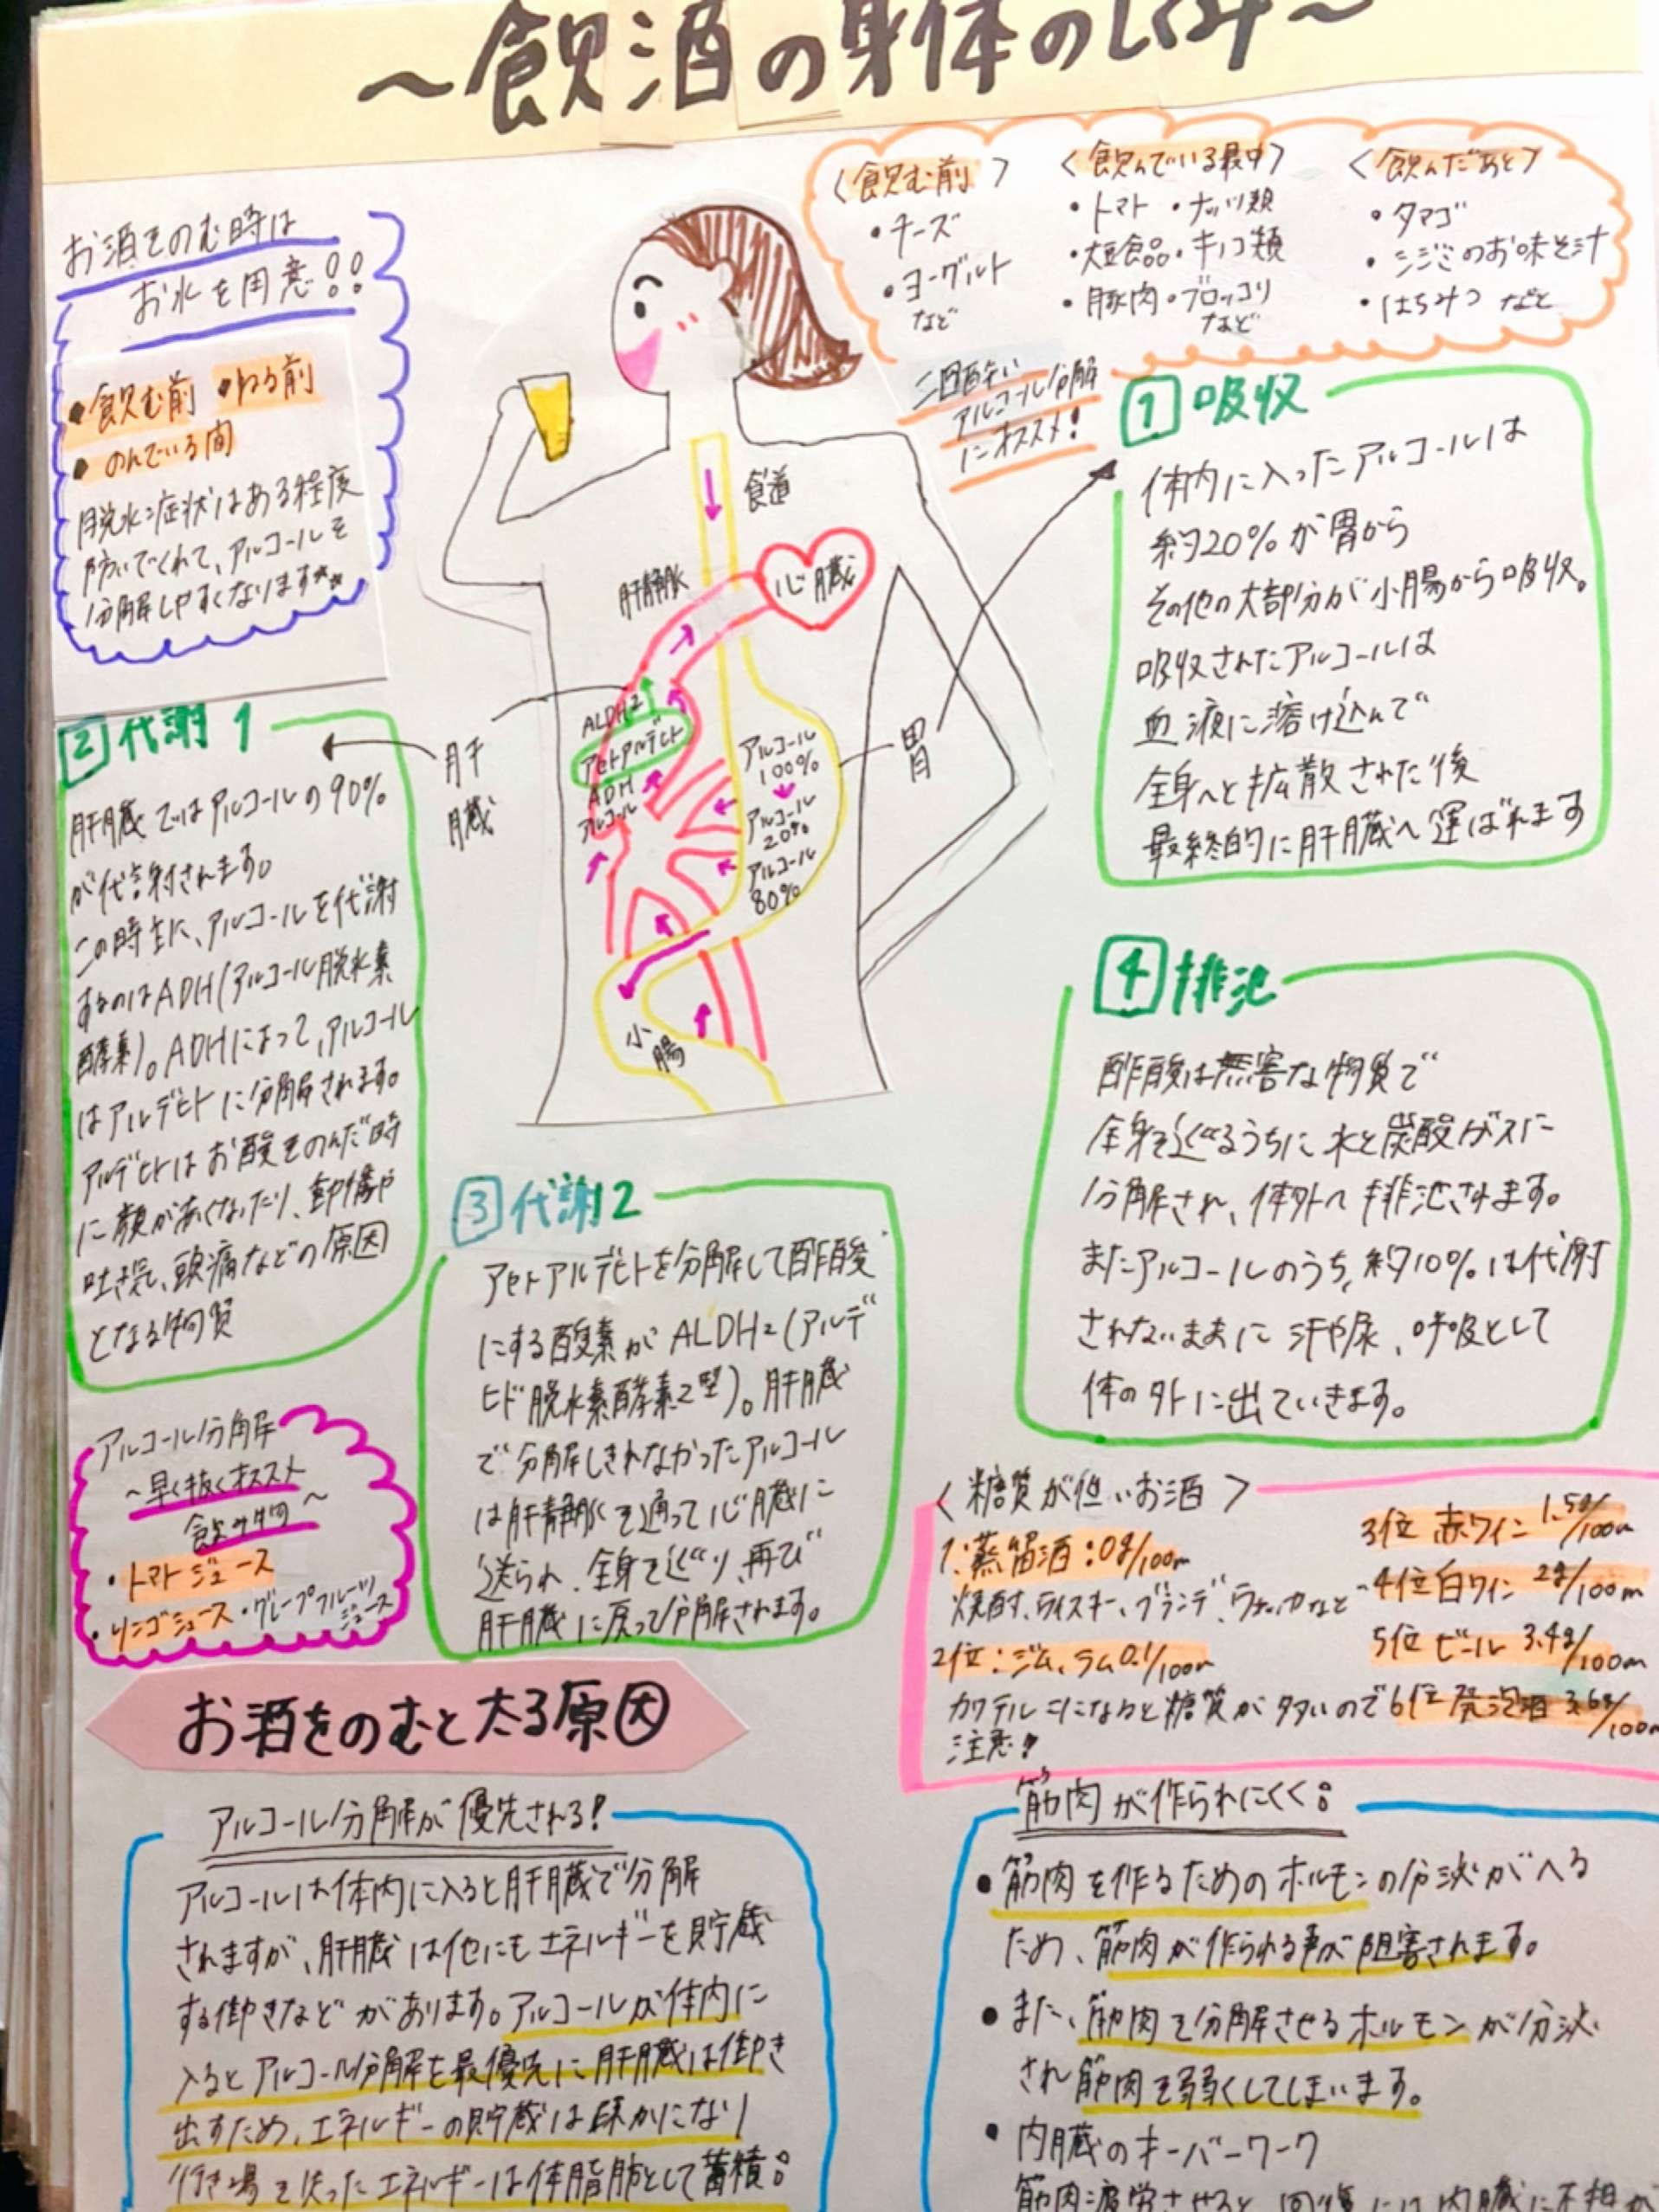 ～飲酒の身体のしくみ～
お酒をのむ時は
お水を用意!!
・飲む前 ・ねる前
・のんでいる間
脱水症状はある程度
防いでくれて、アルコールを
分解しやすくなります
〈飲む前〉
・チーズ
・ヨーグルト
など
〈飲んでいる最中〉
・トマト ・ナッツ類
・大豆食品 ・キノコ類
・豚肉 ・ブロッコリ
など
〈飲んだあと〉
・タマゴ
・シジミのお味そ汁
・はちみつ など
二日酔い
アルコール分解
にオススメ!
食道
肝静脈
心臓
ALDH2
アセトアルデヒト
ADH
アルコール
アルコール
100%
アルコール
20%
アルコール
80%
胃
肝
臓
小
腸
1 吸収
体内に入ったアルコールは
約20%が胃から
その他の大部分が小腸から吸収。
吸収されたアルコールは
血液に溶け込んで
全身へと拡散された後
最終的に肝臓へ運ばれます
2 代謝1
肝臓ではアルコールの90%
が代謝されます。
この時主に、アルコールを代謝
するのはADH(アルコール脱水素
酵素)。ADHによって、アルコール
はアルデヒトに分解されます。
アルデヒトはお酸をのんだ時
に顔が赤くなったり、動悸や
吐き気、頭痛などの原因
となる物質
3 代謝2
アセトアルデヒトを分解して酢酸
にする酸素がALDH2(アルデ
ヒド脱水素酵素2型)。肝臓
で分解しきれなかったアルコール
は肝静脈を通って心臓に
送られ、全身を巡り、再び
肝臓に戻って分解されます。
4 排泄
酢酸は無害な物質で
全身を巡ぐるうちに水と炭酸ガスに
分解され、体外へ排泄されます。
またアルコールのうち、約10%は代謝
されないままに汗や尿、呼吸として
体の外に出ていきます。
アルコール分解
～早く抜くオススト
飲み物～
・トマトジュース
・リンゴジュース ・グレープフルーツ
ジュース
〈糖質が低いお酒〉
1.蒸留酒:0g/100m
焼酎、ウイスキー、ブランデ、ウォッカなど
2位:ジム、ラム0.1/100m
カクテルにになると糖質が多いので
注意!
3位 赤ワイン 1.5g/100m
4位 白ワイン 2g/100m
5位 ビール 3.4g/100m
6位 発泡酒 3.6g/100m
お酒をのむと太る原因
アルコール分解が優先される!
アルコールは体内に入ると肝臓で分解
されますが、肝臓は他にもエネルギーを貯蔵
する働きなどがあります。アルコールが体内に
入るとアルコール分解を最優先に肝臓は働き
出すため、エネルギーの貯蔵は疎かになり
行き場を失ったエネルギーは体脂肪として蓄積。
筋肉が作られにくく。
・筋肉を作るためのホルモンの分泌がへる
ため、筋肉が作られる事が阻害されます。
・また、筋肉を分解させるホルモンが分泌
され筋肉を弱くしてしまいます。
・内臓のオーバーワーク
筋肉疲労させると、回復には内臓に